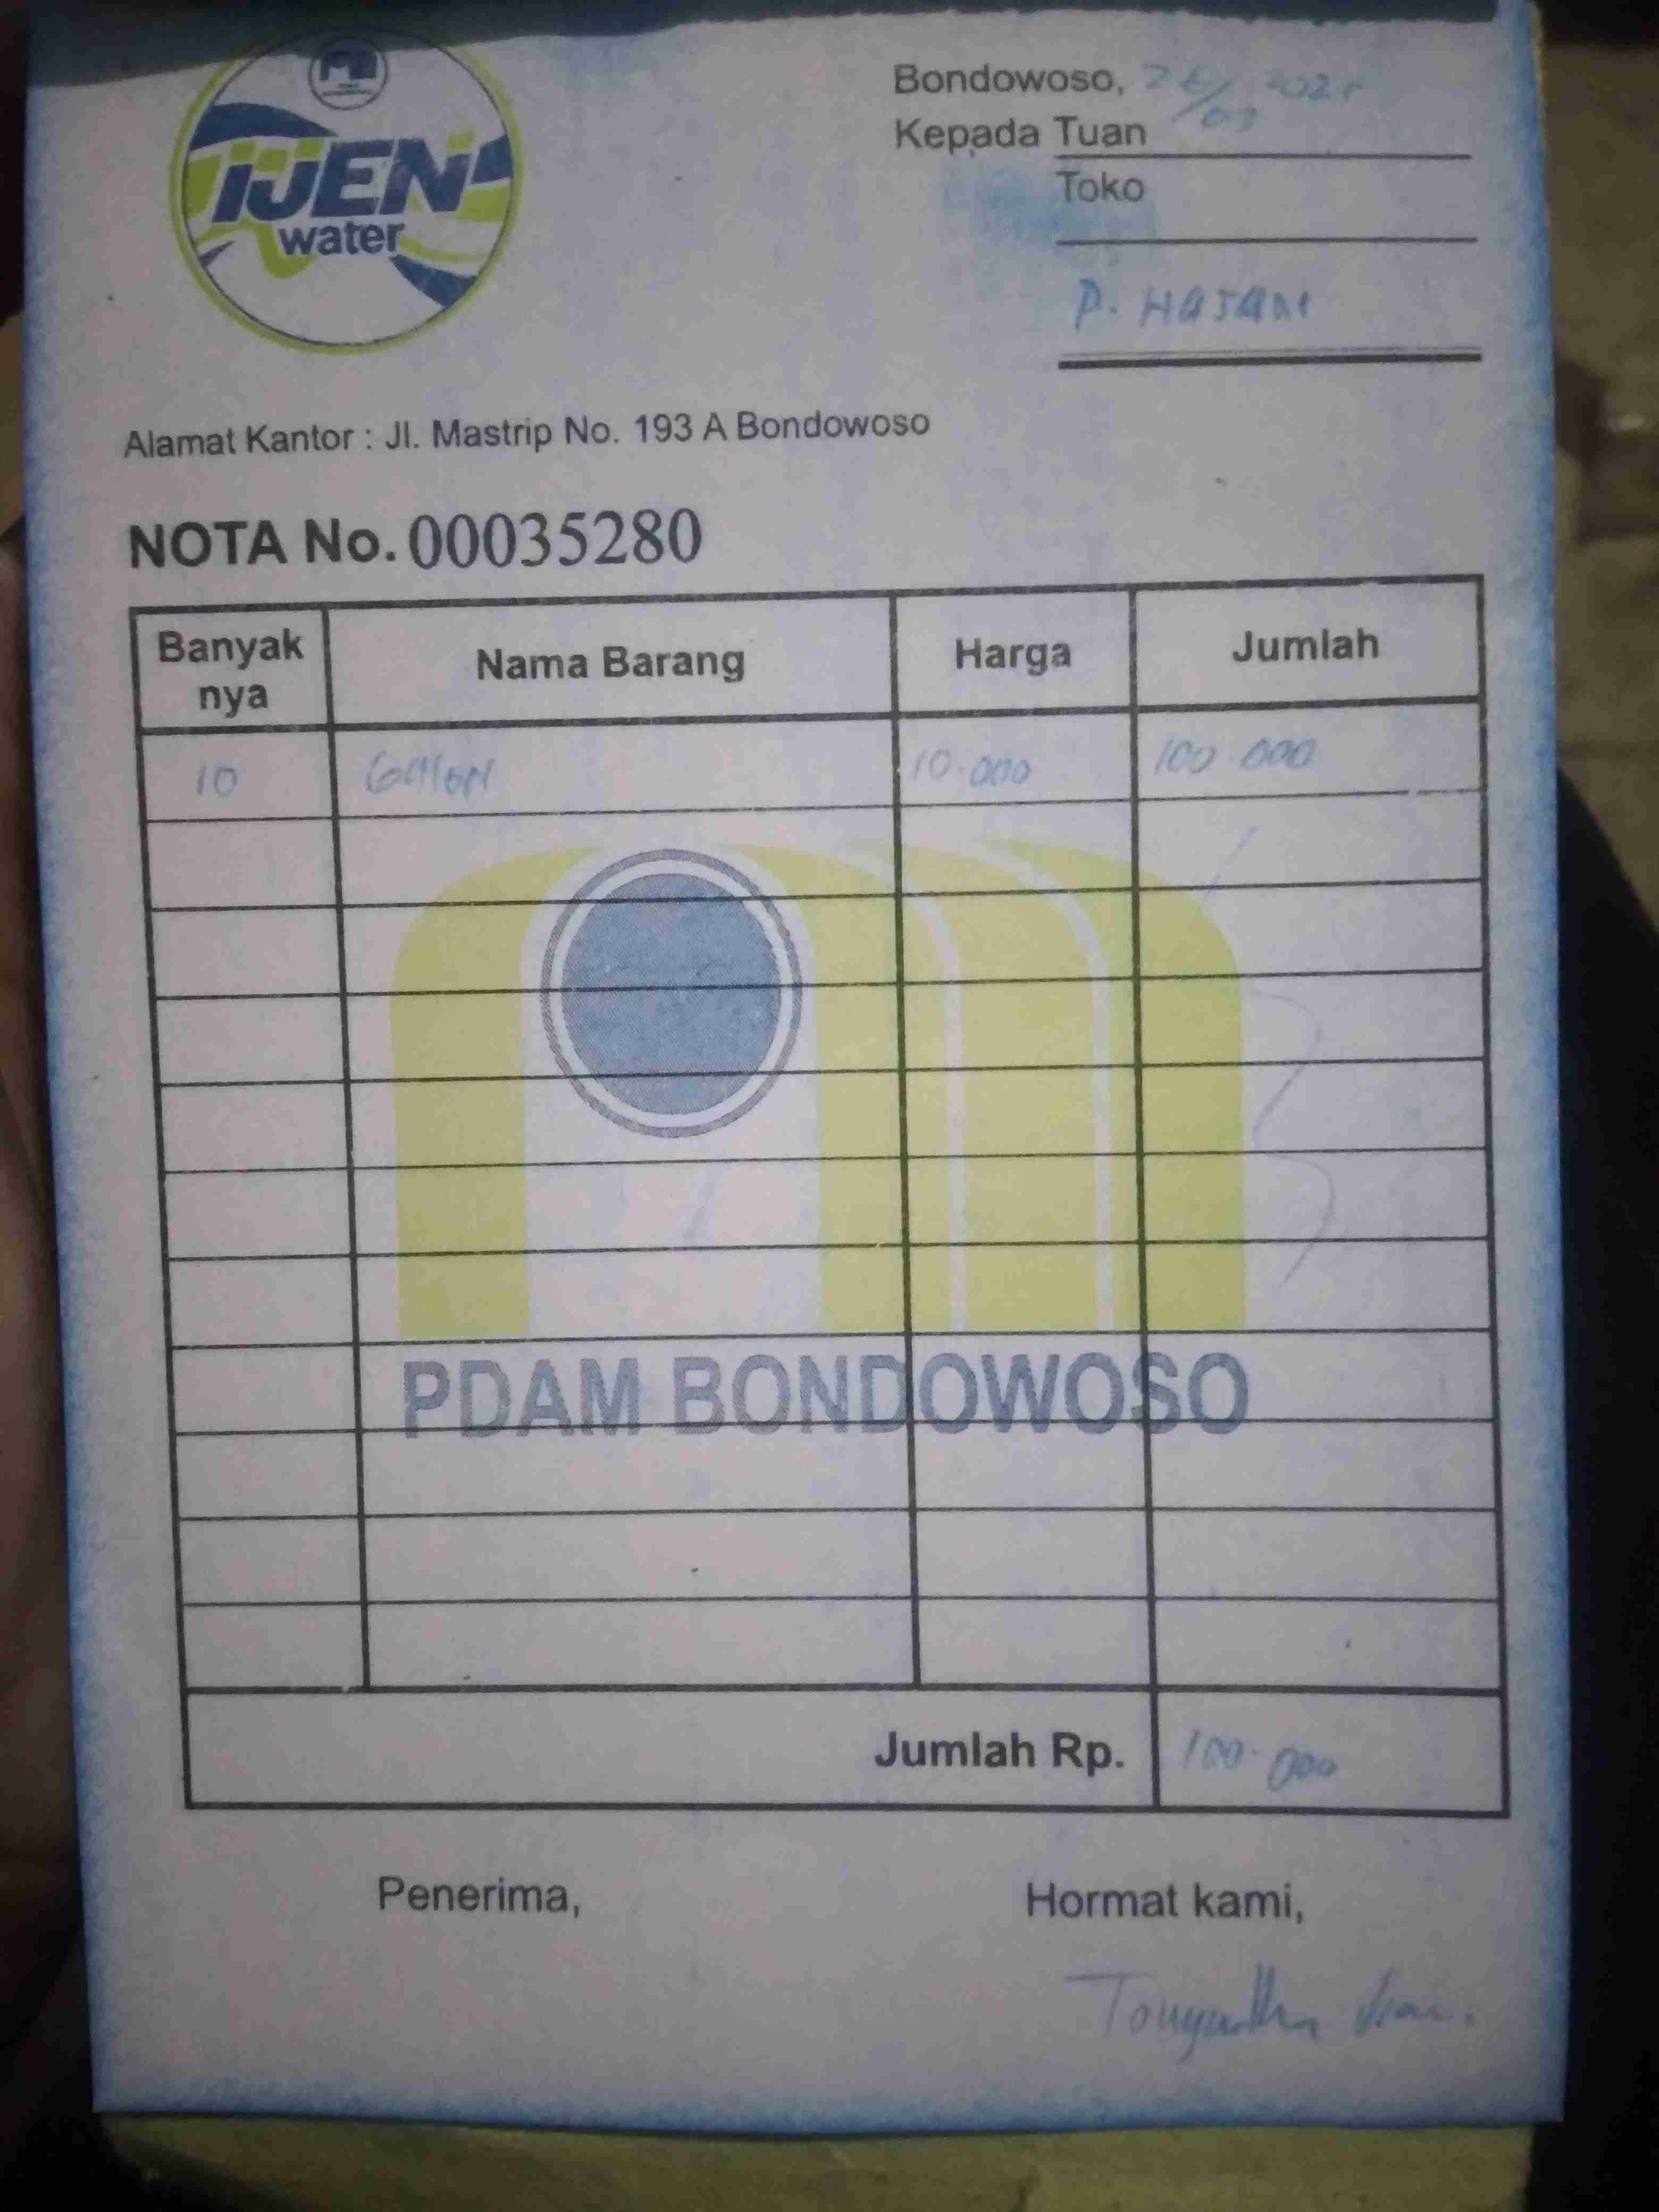 IJEN
water
Bondowoso, 26/03
Kepada Tuan
Toko
P. HASAN
Alamat Kantor : Jl. Mastrip No. 193 A Bondowoso
NOTA No. 00035280
Banyak nya Nama Barang Harga Jumlah
10 GALON 10.000 100.000
PDAM BONDOWOSO
Jumlah Rp. 100.000
Penerima, Hormat kami,